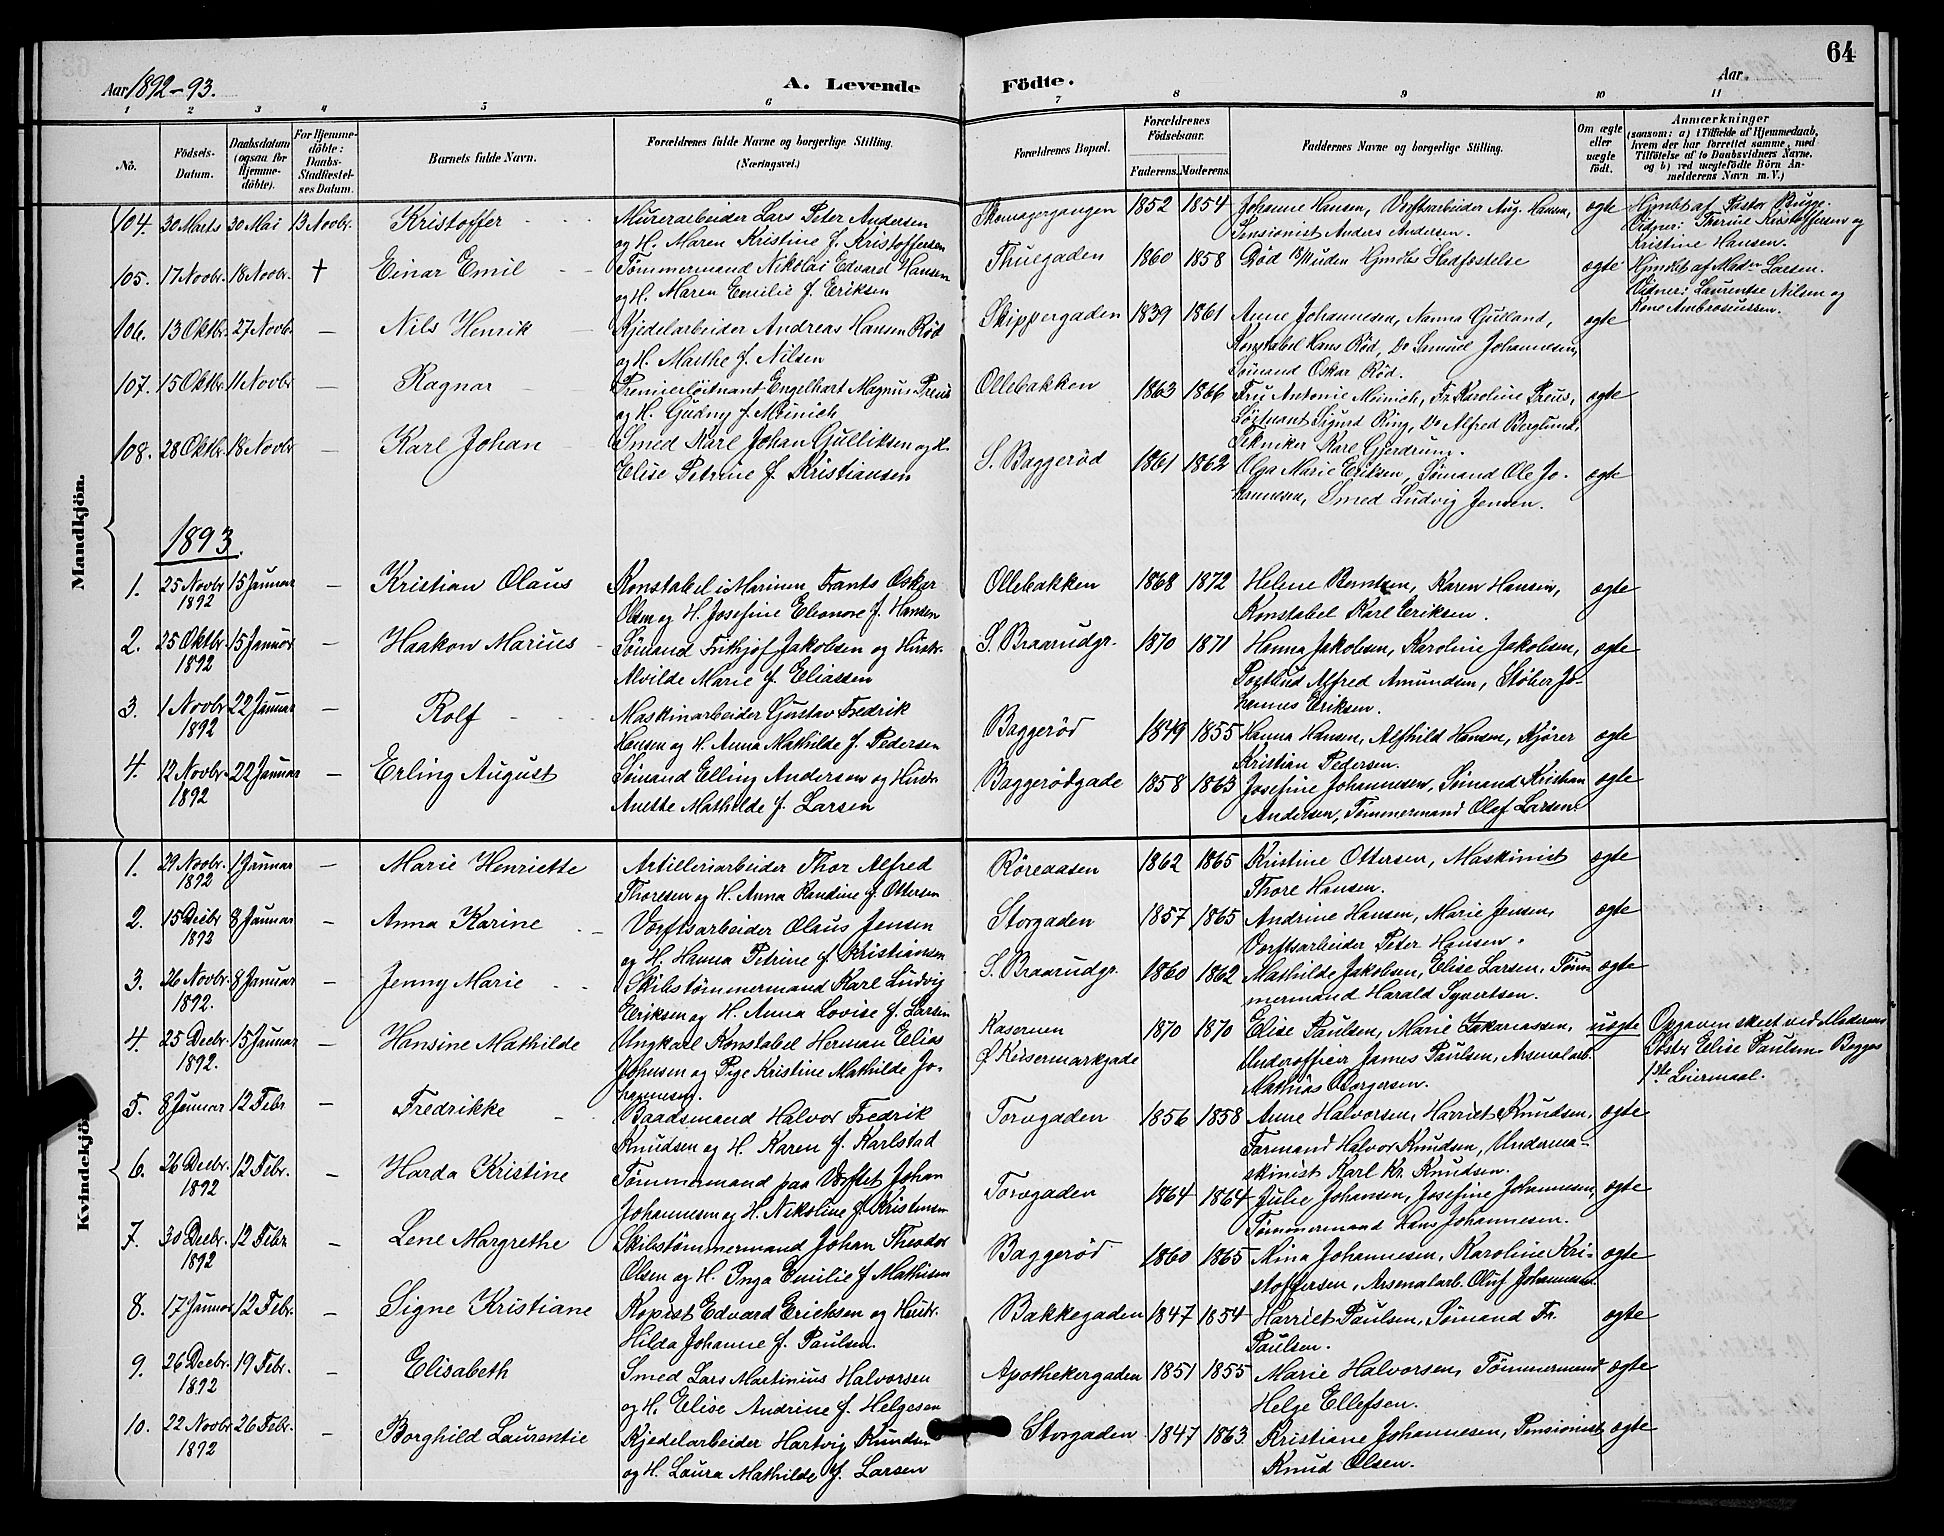 64
Aar 1892-93.
A. Levende Födte.
Aar
1 2 3 4 5 6 7 8 9 10 11
No.
Födsels-Datum.
Daabsdatum (ogsaa for Hjemme-döbte).
For Hjemme-döbte: Daabs-Stadfæstel-ses Datum.
Barnets fulde Navn.
Forældrenes fulde Navne og borgerlige Stilling. (Næringsvei.)
Forældrenes Bopæl.
Forældrenes Födselsaar.
Faderens. Moderens.
Faddernes Navne og borgerlige Stilling.
Om ægte eller uægte födt.
Anmærkninger
(saasom: a) i Tilfælde af Hjemmedaab, hvem der har forrettet samme, med Tilföielse af to Daabsvidners Navne, og b) ved uægtefödte Börn An-melderens Navn m. V.)
Mandkjön.
104. 30 Marts 30 Mai 13 Novbr. Kristoffer Murerarbeider Lars Peter Andersen 1852 1854 Johanne Hansen, Værftsarbeider Aug. Hansen, ægte Hjmdbt af Pastor Bugge.
og H. Maren Kristine f. Kristoffersen Pensionist Anders Andersen. Vidner: Kristoffersen og
Kristine Hansen.
105. 17 Novbr. 18 Novbr. † Einar Emil Tømmermand Nikolai Edvard Hansen Thuegaden 1860 1858 Død uden Hjmdbs Stadfæstelse ægte Hjmdbt af Mad. Larsen.
og H. Maren Emilie f. Eriksen Vidner: Laurentse Nilsen og
Kone Ambrosiussen.
106. 13 Oktbr. 27 Novbr. — Nils Henrik Kjedelarbeider Andreas Hansen Rød Skippergaden 1839 1861 Anne Johannesen, Nanna Gulland, ægte
og H. Marthe f. Nilsen Konstabel Hans Rød, Do Samuel Johannesen,
Sømand Oskar Rød.
107. 15 Oktbr. 11 Novbr — Ragnar Premierløitnant Engelhart Magnus Preus Ollebakken 1863 1866 Fru Antonie Meinich, Fr. Karoline Preus, ægte
og H. Gudny f. Meinich Løitnant Sigurd Ring, Do Alfred Berglund,
Tekniker Karl Gjerdrum.
108. 28 Oktbr. 18 Novbr — Karl Johan Smed Karl Johan Gulliksen og H. S. Baggerød 1861 1862 Olga Marie Eriksen, Sømand Ole Jo-ægte
Elise Petrine f. Kristiansen hannesen, Smed Ludvig Jensen.
1893.
1. 25 Novbr 1892 15 Januar — Kristian Olaus Konstabel i Marinen Frants Oskar Ollebakken 1868 1872 Helene Berntsen, Karen Hansen, ægte
Olsen og H. Josefine Eleonore f. Hansen Konstabel Karl Eriksen.
2. 25 Oktbr. 1892 15 Januar — Haakon Marius Sømand Frithjof Jakobsen og Hustr. S. Braarudgr. 1870 1871 Hanna Jakobsen, Karoline Jakobsen, ægte
Alvilde Marie f. Eliassen Postbud Alfred Amundsen, Støber Jo-
hannes Eriksen.
3. 1 Novbr 1892 22 Januar — Rolf Maskinarbeider Gustav Fredrik Baggerød 1849 1855 Hanna Hansen, Alfhild Hansen, Kjører ægte
Hansen og H. Anna Mathilde f. Pedersen Kristian Pedersen.
4. 12 Novbr. 1892 22 Januar — Erling August Sømand Elling Andersen og Hustr. Baggerødgade 1858 1863 Josefine Johannesen, Sømand Kristian ægte
Anette Mathilde f. Larsen Andersen, Tømmermand Olof Larsen.
Kvindekjön.
1. 29 Novbr. 1892 1 Januar — Marie Henriette Artilleriarbeider Thor Alfred Röreaasen 1862 1865 Kristine Ottersen, Maskinist ægte
Thoresen og H. Anna Randine f. Ottersen Thore Hansen.
2. 15 Decbr 1892 8 Januar — Anna Karine Værftsarbeider Olaus Jensen Storgaden 1857 1865 Andrine Hansen, Marie Jensen, ægte
og H. Hanna Petrine f. Kristiansen Værftsarbeider Peter Hansen.
3. 26 Novbr. 1892. 8 Januar — Jenny Marie Skibstømmermand Karl Ludvig S. Braarudgr. 1860 1862 Mathilde Jakobsen, Elise Larsen, Tøm- ægte
Eriksen og H. Anna Lovise f. Larsen mermand Harald Syvertsen.
4. 25 Decbr. 1892. 15 Januar — Hansine Mathilde Ungkarl Konstabel Herman Elias Kasernen 1870 1870 Elise Paulsen, Marie Zakariassen, uægte Opgaven skeet ved Moderens
Johnsen og Pige Kristine Mathilde Jo-hannesen. Ø Keisermarkgade Underofficer James Paulsen, Arsenalarb. Søster Elise Paulsen
Mathias Borgersen. 1ste Leiermaal.
5. 8 Januar 12 Febr — Fredrikke Baadsmand Halvor Fredrik Torvgaden 1856 1858 Anne Halvorsen, Harriet Knudsen, ægte
Knudsen og H. Karen f. Karlstad Formand Halvor Knudsen, Underma-
skinist Karl Kr. Knudsen.
6. 26 Decbr. 1892 12 Febr. — Harda Kristine Tømmermand paa Værftet Johan Torvgaden 1864 1864 Julie Johansen, Josefine Johannesen, ægte
Johannesen og H. Nikoline f. Kristensen Tømmermand Hans Johannesen.
7. 30 Decbr. 1892 12 Febr — Lene Margrethe Skibstømmermand Johan Theodor Baggerød 1860 1865 Mina Johannesen, Karoline Kri- ægte
Olsen og H. Inga Emilie f. Mathisen stoffersen, Arsenalarb. Oluf Johannesen.
8. 17 Januar 12 Febr. — Signe Kristiane Kopist Edvard Erichsen og Hustr. Bakkegaden 1847 1854 Harriet Paulsen, Sømand Fr. ægte
Hilda Johanne f. Paulsen. Paulsen.
9. 26 Decbr. 1892 19 Febr. — Elisabeth Smed Lars Martinius Halvorsen Apothekergaden 1851 1855 Marie Halvorsen, Tømmermand ægte
og H. Elise Andrine f. Helgesen Helge Ellefsen.
10. 22 Novbr 1892 26 Febr. — Borghild Laurentie Kjedelarbeider Hartvig Knudsen Storgaden 1847 1863 Kristiane Johannesen, Pensionist ægte
og H. Laura Mathilde f. Larsen Knud Olsen.